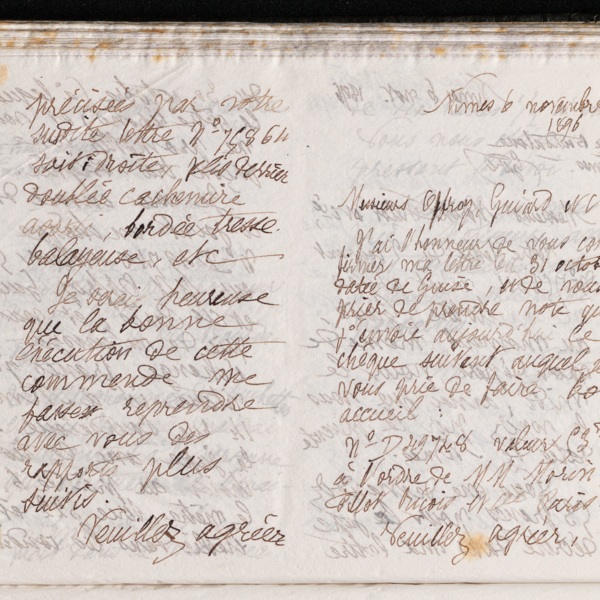 précisées par votre
susdite lettre Nº 75864
soit: droite, plis derrière
doublée cachemire
assorti, bordée tresse
balayeuse, etc
Je serai heureuse
que la bonne
éxécution de cette
commande me
fasse reprendre
avec vous des
rapports plus
suivis.
Veuillez agréer
Nimes 6 novembre
1896
Messieurs Offroy, Guiard et C
J'ai l'honneur de vous con
firmer ma lettre du 31 octob
datée de Guise, et de vous
prier de prendre note qu
j'envoie aujourd'hui le
chèque suivant auquel
vous prie de faire bo
accueil :
nº D 49748 valeur
à l'ordre de MM. Morin
et Cie Paris
Veuillez agréer,